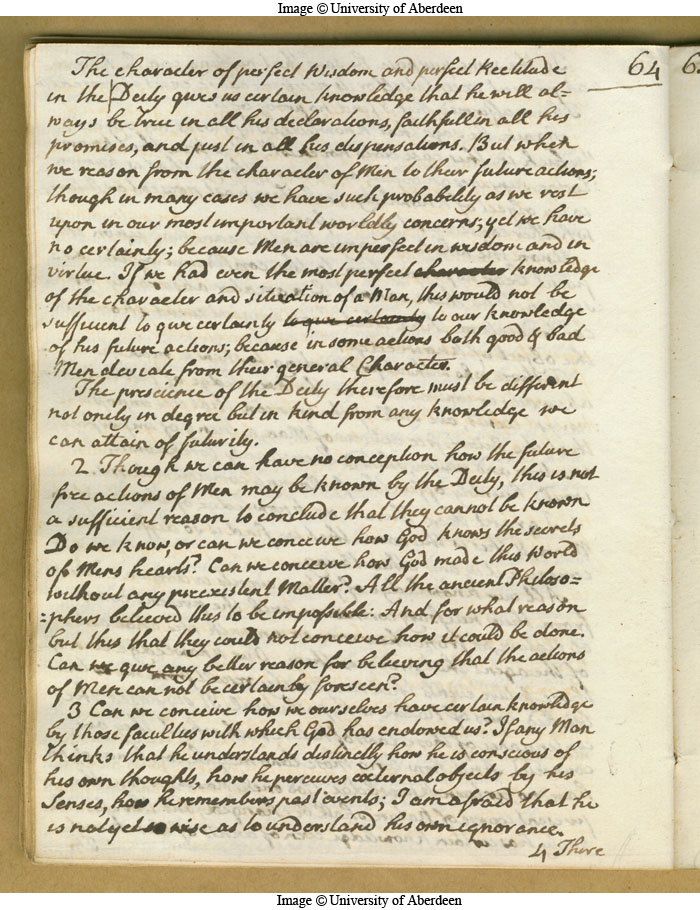 Image © University of Aberdeen
64
6
The character of perfect Wisdom and perfect Rectitude
in the Deity gives us certain knowledge that he will al=
ways be true in all his declarations, faithfull in all his
promises, and just in all his dispensations. But when
we reason from the character of Men to their future actions;
though in many cases we have such probability as we rest
upon in our most important worldly concerns; yet we have
no certainty; because Men are imperfect in wisdom and in
virtue. If we had even the most perfect character knowledge
of the character and situation of a Man, this would not be
sufficient to give certainty to give certainty to our knowledge
of his future actions; because in some actions both good & bad
Men deviate from their general Character.
The prescience of the Deity therefore must be different
not onely in degree but in kind from any knowledge we
can attain of futurity.
2 Though we can have no conception how the future
free actions of Men may be known by the Deity, this is not
a sufficient reason to conclude that they cannot be known
Do we know, or can we conceive how God knows the secrets
of Mens hearts? Can we conceive how God made this World
without any preexistent Matter? All the ancient Philoso=
=phers believed this to be impossible: And for what reason
but this that they could not conceive how it could be done.
Can we give any better reason for believing that the actions
of Men can not be certainly foreseen?
3 Can we conceive how we ourselves have certain knowledge
by those faculties with which God has endowed us? If any Man
thinks that he understands distinctly how he is conscious of
his own thoughts, how he perceives external objects by his
Senses, how he remembers past events; I am afraid that he
is not yet so wise as to understand his own ignorance.
4 There
Image © University of Aberdeen